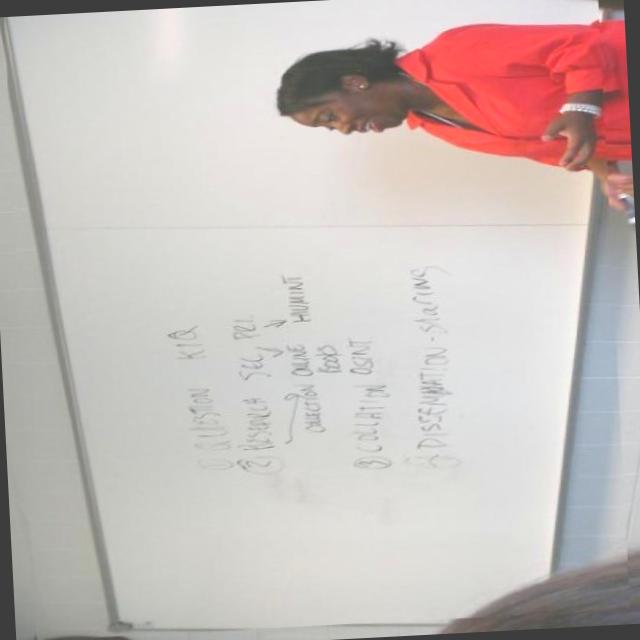 ① QUESTION KIQ
② RESEARCH SEC, PRI.
COLLECTION ONLINE HUMINT
BOOKS
③ COLLATION OSINT
DISSEMINATION - sharing